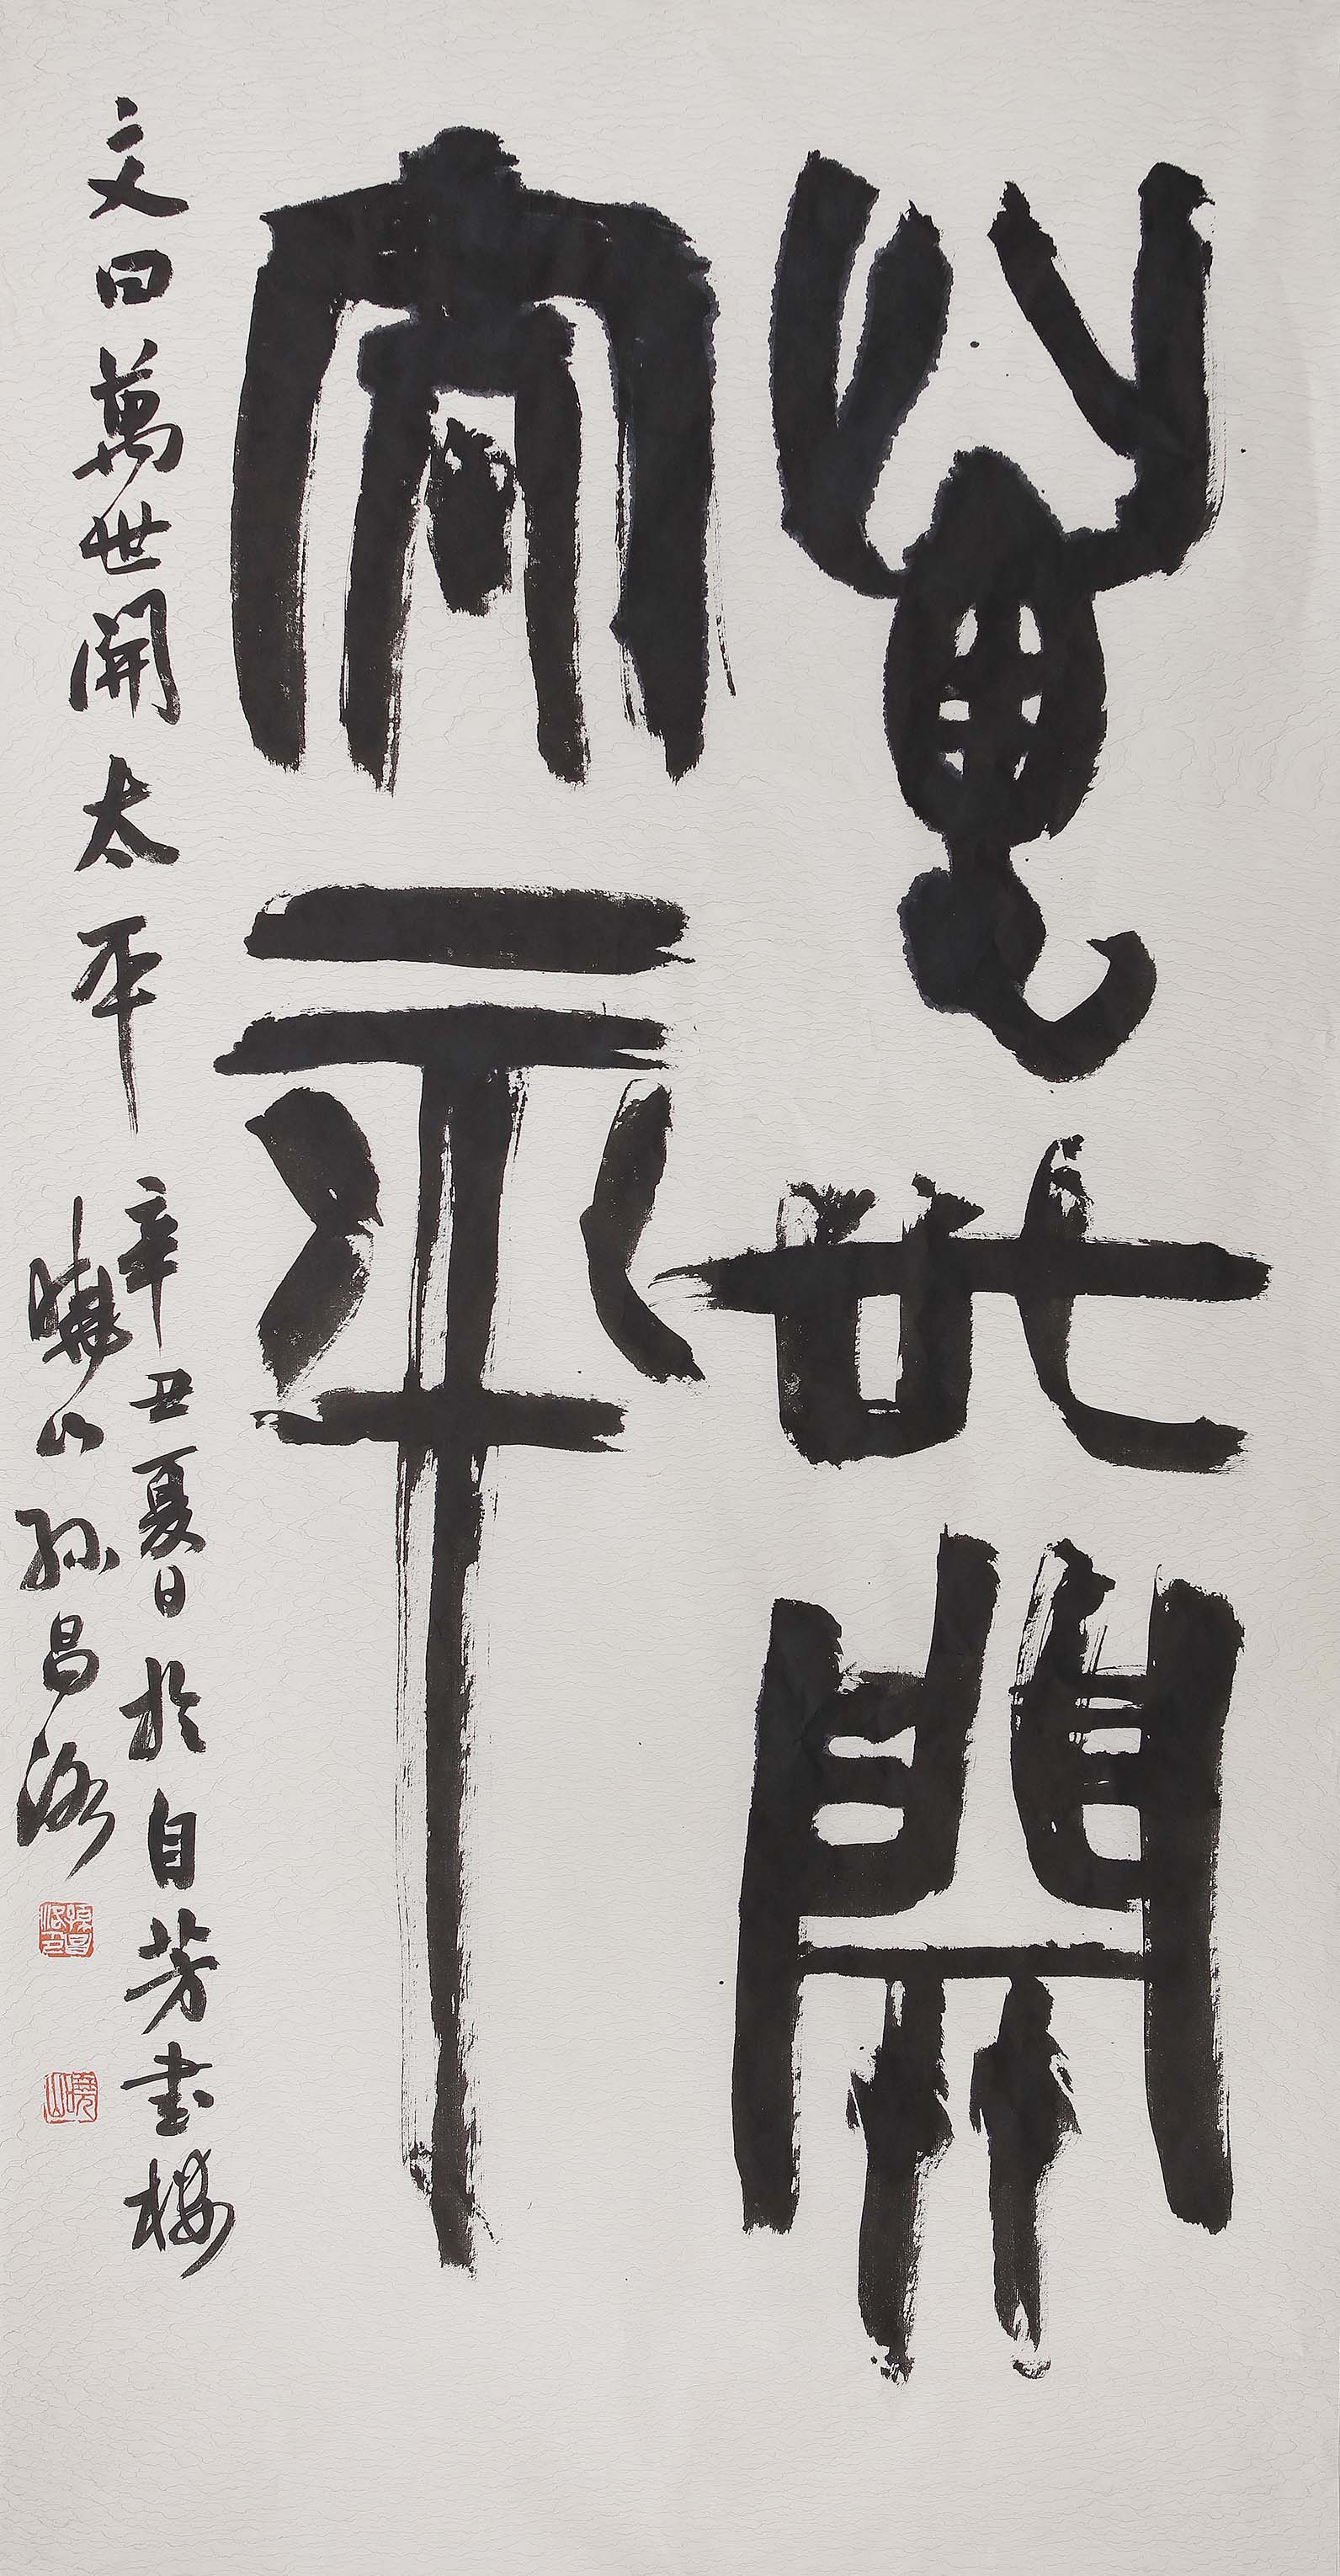 萬世開
太平
文曰萬世開太平
辛丑夏日於自芳書樓
曉山孫昌洛